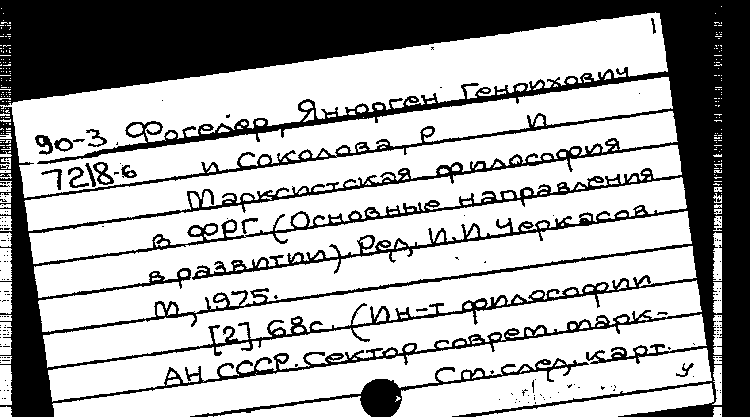 1
90-3 Фогелер, Янюрген Генрихович
7218-б и Соколова, Р П
Марксистская философия
в ФРГ. (Основные направления
в развитии). Ред. И.И. Черкасов.
М, 1975.
[2], 68с. (Ин-т философии
АН СССР. Сектор соврем. марк-
См. след. карт.